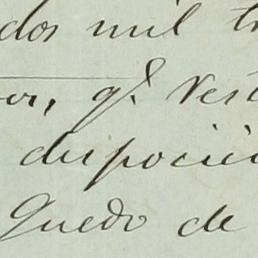 dos mil
qe. rest
dispocici
Quedo de